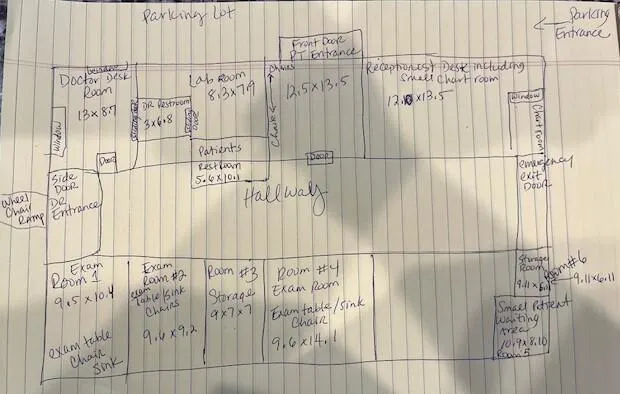 Parking Lot
Parking
Entrance
Front Door
PT Entrance
12.5 x 13.5
Chairs
Chairs
window
Doctor Desk
Room
13 x 8.7
Window
Door
DR Restroom
3x6.8
Sliding Door
Lab Room
8.3 x 7.9
Patients
Restroom
5.6 x 10.1
Receptionest Desk including
Small Chart room
12.10 x 13.5
Window
Chart room
Door
Hallway
Side
Door
DR
Entrance
Wheel
Chair
Ramp
emergency
exit
Door
Exam
Room 1
9.5 x 10.4
exam table
Chair
Sink
Exam
Room #2
exam
table/sink
Chairs
9.6 x 9.2
Room #3
Storage
9x7x7
Room #4
Exam Room
Exam table/sink
Chair
9.6 x 14.1
Storage
Room
9.11 x 6.11
Room #6
9.11 x 6.11
Small Patient
Waiting
Area
10.9 x 8.10
Room 5